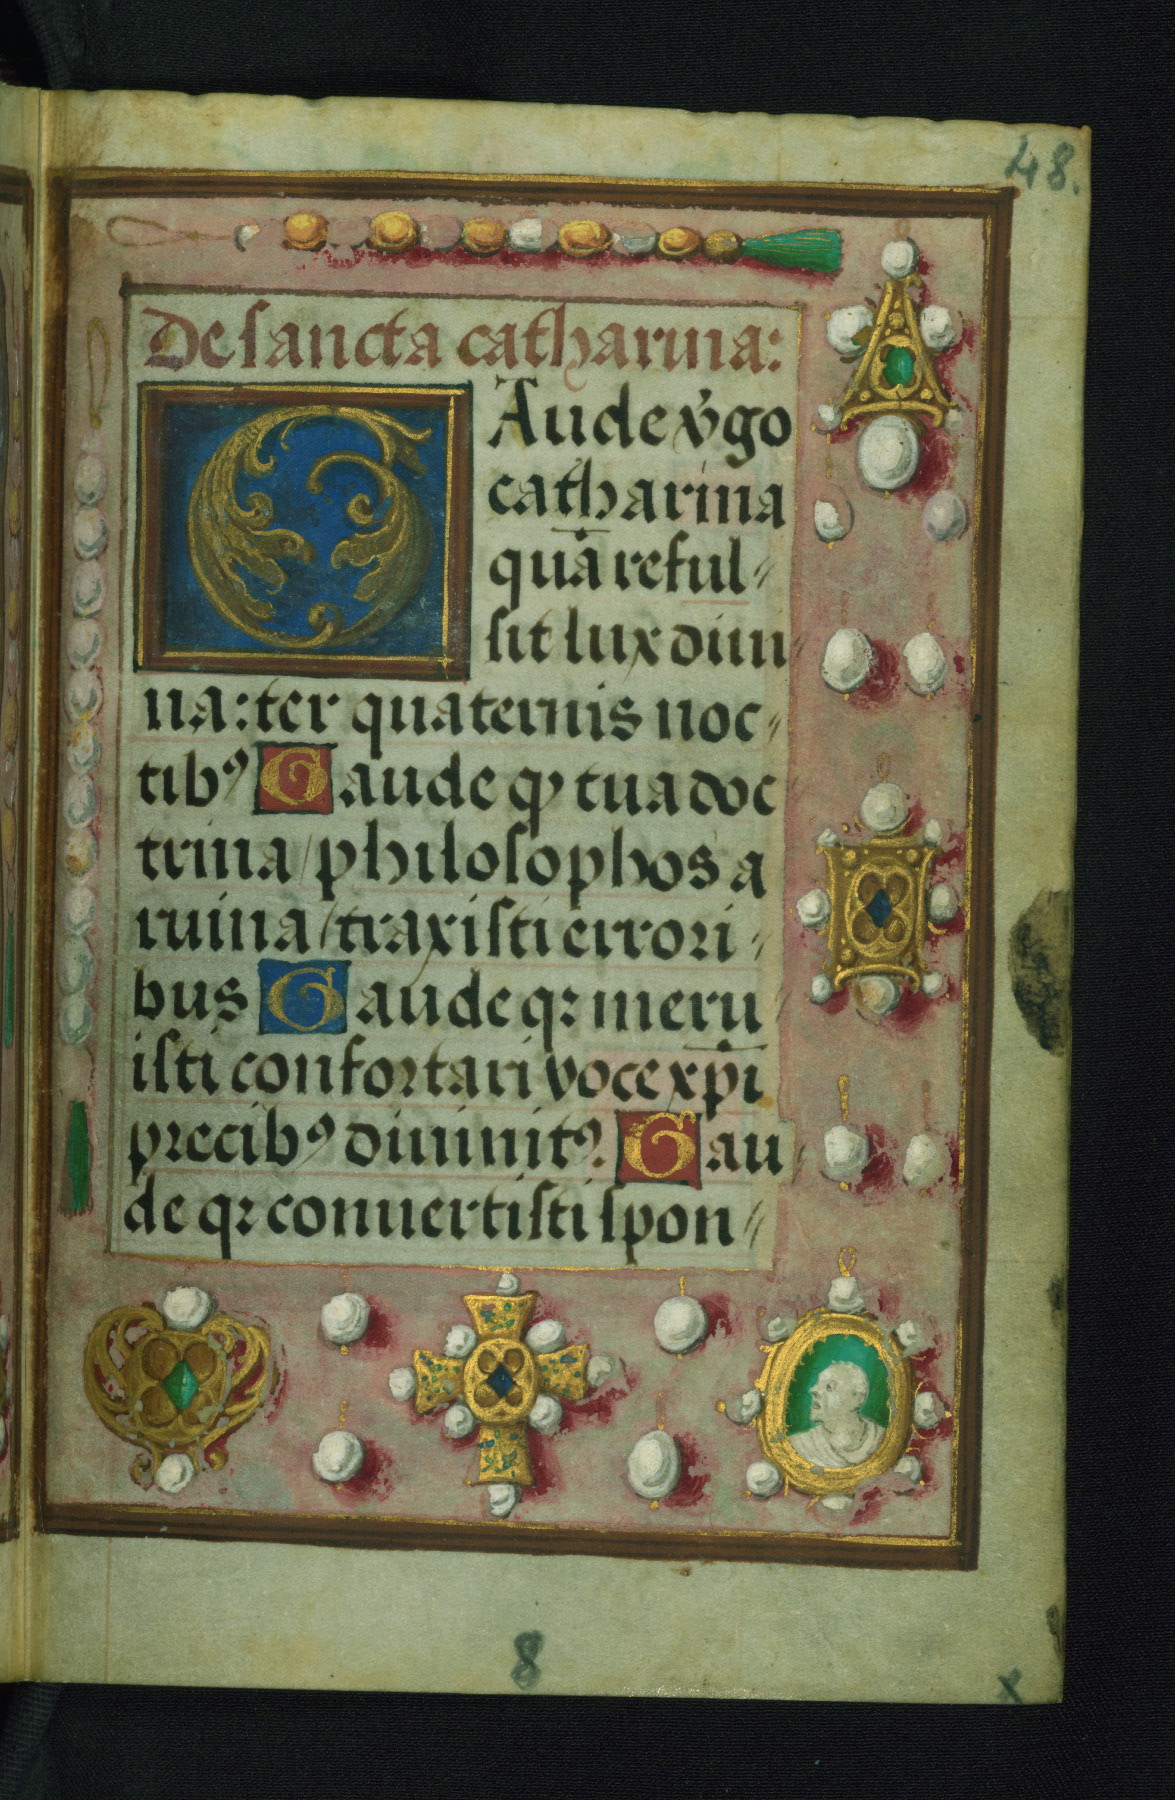 48.
De sancta catharina:
GAude v̾go
catharina
quā reful⸗
sit lux diui
na: ter quaternis noc⸗
tibꝰ Gaude ꝙ tua doc
trina / philosophos a
ruina / traxisti errori⸗
bus Gaude qꝛ meru⸗
isti confortari voce xp̄i
precibꝰ diuinitꝰ. Gau⸗
de qꝛ conuertisti spon⸗
8
x